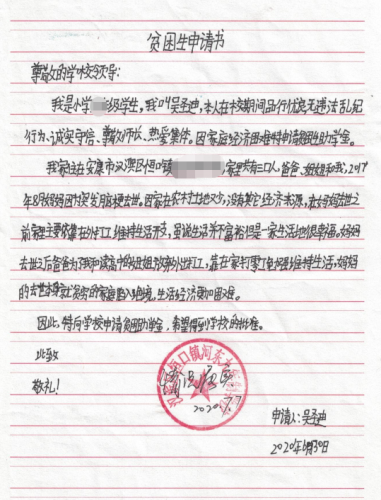 贫困生申请书
尊敬的学校领导:
我是小学 级学生,我叫吴圣迪,本人在校期间品行优良无违法乱纪
行为、诚实守信、尊敬师长、热爱集体。因家庭经济困难特申请贫困生助学金。
我家住在安康市汉滨区恒口镇 家里共有三口人,爸爸、姐姐和我,2017
年8月妈妈因为突发脑梗去世。因家在农村土地又少,没有其它经济来源,在妈妈去世之
前家里主要依靠在外打工维持生活开支,虽说生活并不富裕但是一家生活地很幸福。妈妈
去世之后爸爸为了我和读高中的姐姐放弃外出打工,靠在家打零工勉强维持生活,妈妈
的去世 贫穷的家庭陷入 境,生活经济更加困难。
因此,特向学校申请贫困助学金,希望得到学校的批准。
此致
敬礼!
恒口镇河东
情况属实
2020.7.7
申请人:吴圣迪
2020年6月30日